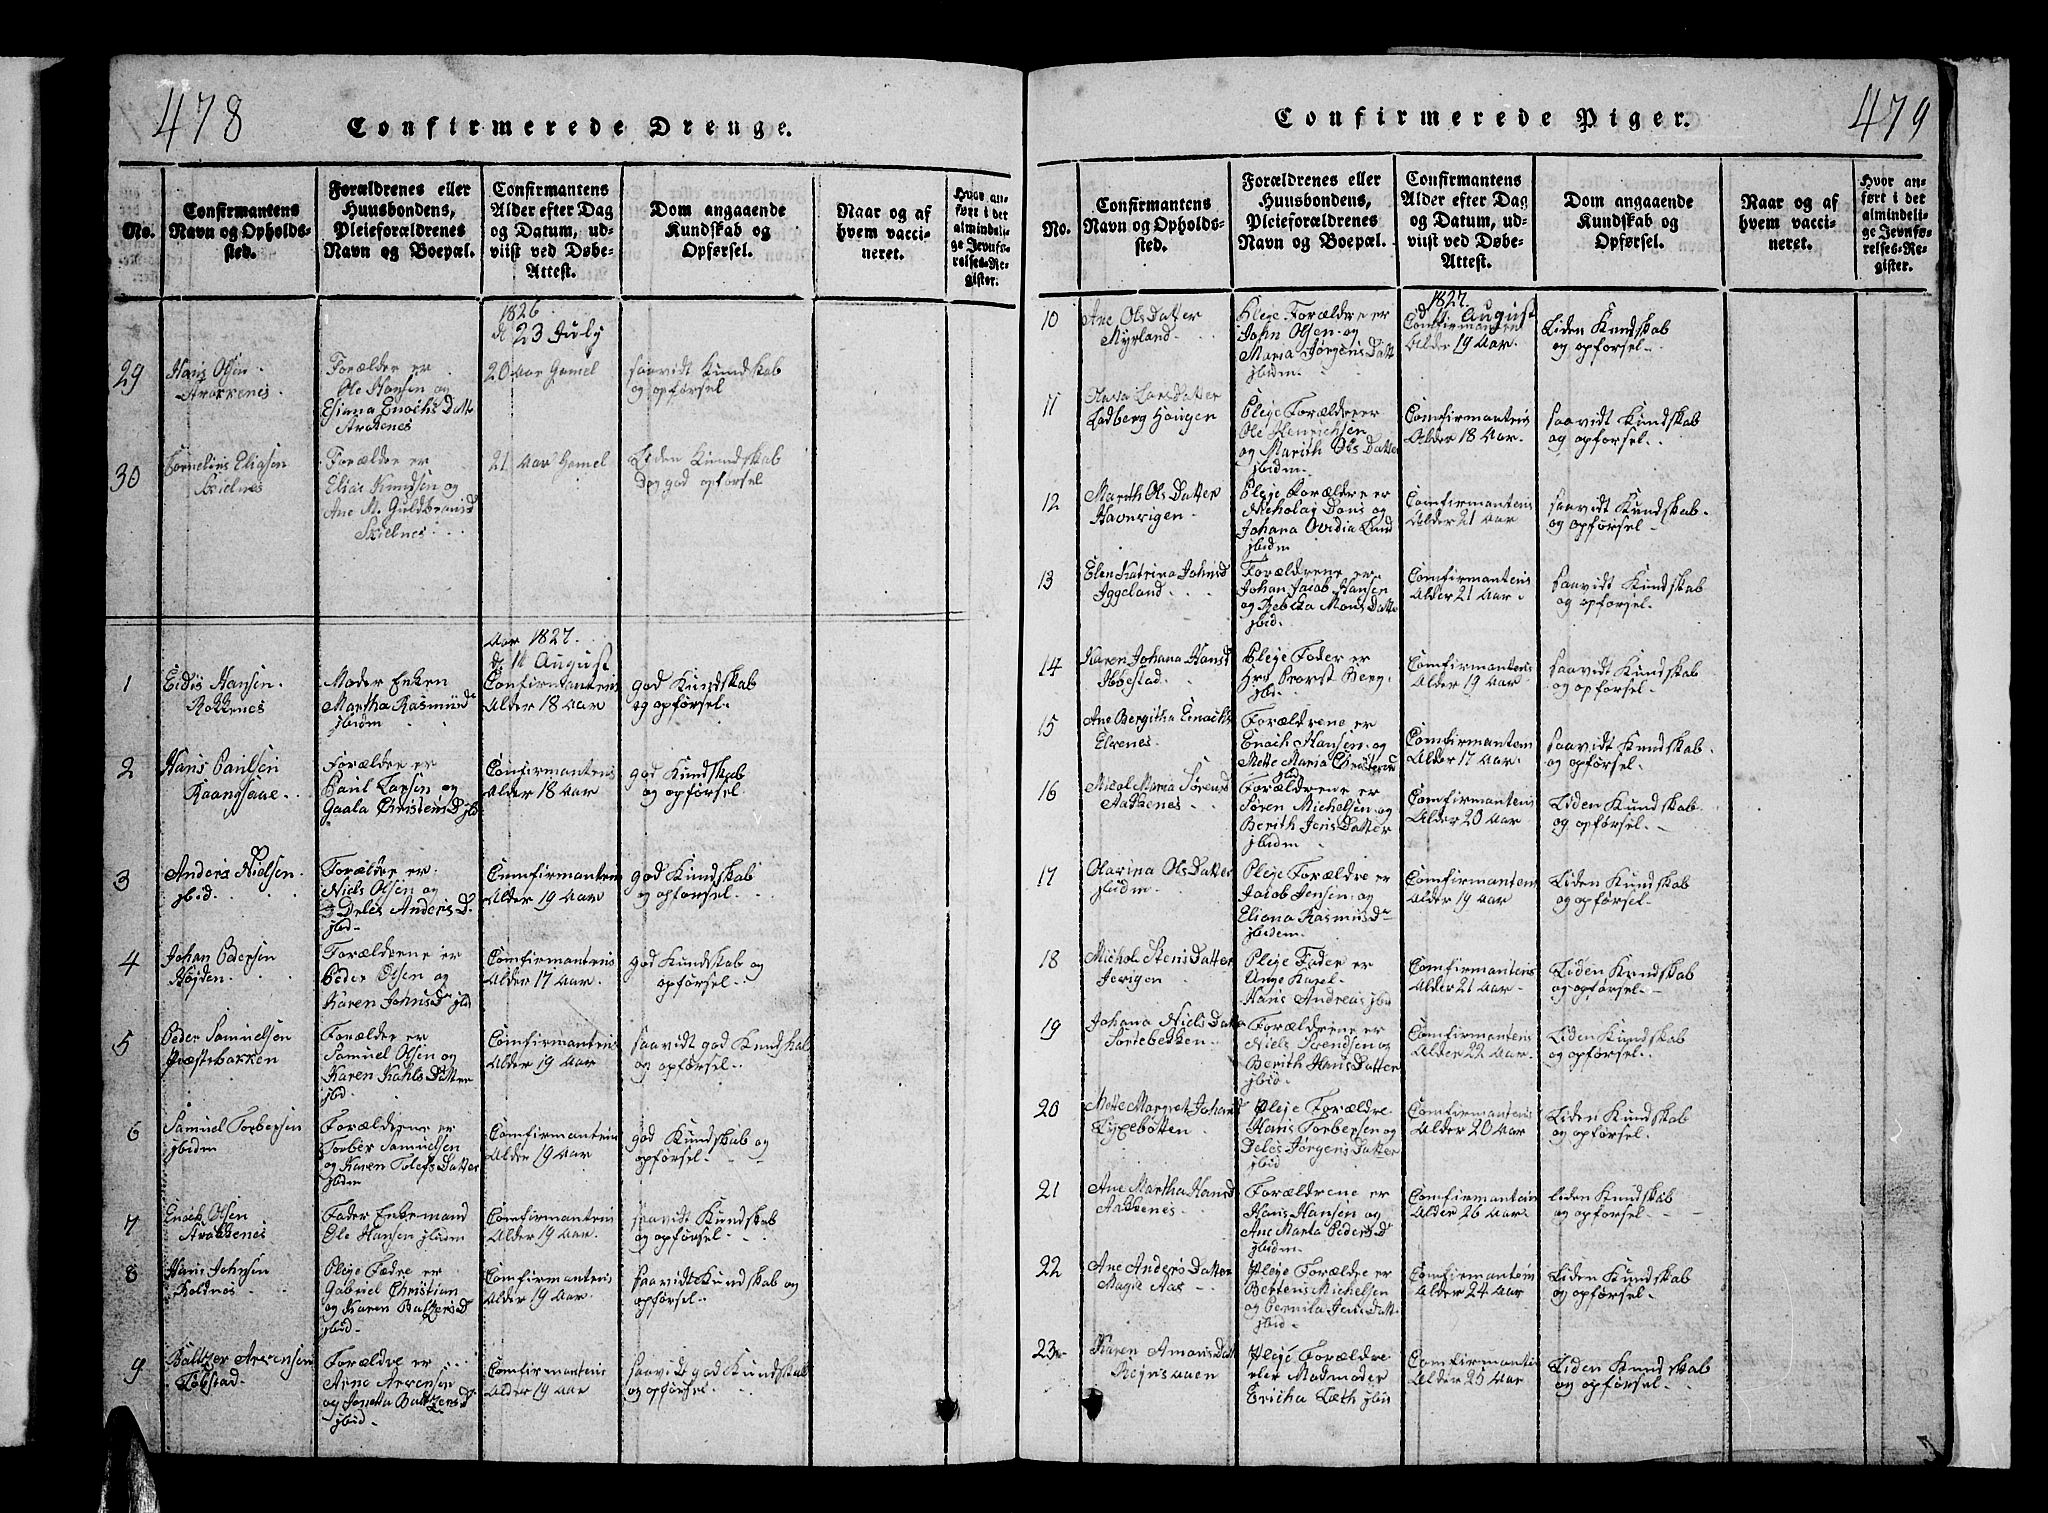 478
Confirmerede Drenge.
No.
Confirmantens
Navn og Opholds-
sted.
Forældrenes eller
Huusbondens,
Pleieforældrenes
Navn og Boepæl.
Confirmantens
Alder efter Dag
og Datum, ud-
viist ved Døbe-
Attest.
Dom angaaende
Kundskab og
Opførsel.
Naar og af
hvem vacci-
neret.
Hvor an-
ført i det
almindeli-
ge Jevnfø-
relses-Re-
gister.
1826
d 23 July
29
Hans Olsen
Forældre er
Ole Hansen og
Eliana Enochs Datt
20 Aar Gamel
saavidt Kundskab
og opførsel
30
Cornelius Eliasen
Skielnes
Forældre er
Elias Knudsen og
Ane M. Guldbransd
Skielnes
21 Aar Gamel
Liden Kundskab
Dog god opførsel
Aar 1827.
d. 11 August
1
Hansen
Rokkenes
Moder Enken
Martha Rasmusd
jbidm
Comfirmantens
Alder 18 Aar
god Kundskab
og opførsel.
2
Hans Paulsen
Forældre er
Paul Larsen og
Gaala Christens D jbd
Comfirmantens
Alder 18 Aar
god Kundskab
og opførsel.
3
Anders Nielsen
jbid.
Forældre er
Niels Olsen og
Deles Anders D.
jbd.
Comfirmanten
Alder 19 Aar
god Kundskab
og opførsel.
4
Johan Pedersen
Højden
Forældrene er
Peder Olsen og
Karen Johnsd jbd
Comfirmantens
Alder 17 Aar
god Kundskab og
opførsel.
5
Peder Samuelsen
Præstebakken
Forældre er
Samuel Olsen og
Karen Kahls Datter
jbd.
Comfirmantens
Alder 19 Aar
saavidt god Kundskab
og opførsel.
6
Samuel Torbersen
jbidm
Forældrene er
Torber Samuelsen
og Karen Tolefs Datter
jbdm
Comfirmanten
Alder 19 Aar
god Kundskab og
opførsel.
7
Enoch Olsen
Fader Enkemand
Ole Hansen jbidm
Comfirmantens
Alder 19 Aar.
saavidt Kundskab
og opførsel.
8
Hans Johnsen
Roldnes
Pleje Fædre er
Gabriel Christian
og Karen Baltzersd
jbid
Comfirmantens
Alder 19 Aar.
saavidt Kundskab og
opførsel.
9
Baltzer Arrensen
Løbstad
Forældre er
Arne Arrensen
og Jonetta Baltzers D
jbid.
Comfirmantens
Alder 19 Aar
saavidt god Kundskab
og opførsel
479
Confirmerede Piger.
No.
Confirmantens
Navn og Opholds-
sted.
Forældrenes eller
Huusbondens,
Pleieforældrenes
Navn og Boepæl.
Confirmantens
Alder efter Dag
og Datum, ud-
viist ved Døbe-
Attest.
Dom angaaende
Kundskab og
Opførsel.
Naar og af
hvem vacci-
neret.
Hvor an-
ført i det
almindeli-
ge Jevnfø-
relses-Re-
gister.
1827.
d 11 August
10
Ane Ols Datter
Myrland
Pleje Forældre er
John Olsen og
Maria Jørgens Datt
jbidm.
Comfirmanten
Alder 19 Aar.
Liden Kundskab
og opførsel.
11
Lars Datter
Ladberg Haugen
Pleje Forældre er
Ole Henrichsen
og Marith Ols Datter
jbidm.
Comfirmantens
Alder 18 Aar.
saavidt Kundskab
og opførsel.
12
Marith Ols Datter
Havnvigen
Pleje Forældre er
Nicholaj Dons og
Johana Ovidia Lund
jbidm
Comfirmantens
Alder 21 Aar
saavidt Kundskab
og opførsel
13
Elen Katrina Johnsd
Aggeland
Forældrene er
Johan Jacob Hansen
og Rebeka Mons Datte
jbid.
Comfirmantens
Alder 21 Aar
saavidt Kundskab
og opførsel.
14
Karen Johana Hansd
Ibbestad
Pleje Fader er
Hr. Provst Berg
jbid.
Comfirmantens
Alder 19 Aar
saavidt Kundskab
og opførsel.
15
Ane Bergitha Enochs
Elvenes
Forældrene er
Enoch Hansen og
Mette Maria
Comfirmanten
Alder 17 Aar
saavidt Kundskab
og opførsel.
16
Micol Maria Sørensd
Aakkenes
Forældrene er
Søren Michelsen og
Berith Jens Datter
jbidm
Comfirmantens
Alder 20 Aar
Liden Kundskab
og opførsel.
17
Olavina Ols Datter
jbidm
Pleje Forældre er
Jacob Jensen og
Eliana Rasmus D
jbidem.
Comfirmantens
Alder 19 Aar
Liden Kundskab
og opførsel.
18
Michol Stens Datter
Jervigen
Pleje Fader er
Unge Karel
Hans Andreas jbid
Comfirmantens
Alder 21 Aar
Liden Kundskab
og opførsel.
19
Johana Niels Datter
Sortebekken
Forældrene er
Niels Svendsen og
Berith Hans Datter
jbid.
Comfirmantens
Alder 22 Aar.
Liden Kundskab
og opførsel
20
Mette Margret Johansd
Lyxebotten
Pleje Forældre
Hans Torbersen og
Deles Jørgens Datter
jbid
Comfirmantens
Alder 20 Aar
Liden Kundskab
og opførsel.
21
Ane Martha Hansd
Aakkenes
Forældrene er
Hans Hansen og
Ane Marta Pedersd
jbidm.
Comfirmanten
Alder 26 Aar
liden Kundskab
og opførsel.
22
Ane Anders Datter
Pleje Forældre er
Bertens Michelsen
og Pernila Jens Datt
jbid
Comfirmanten
Alder 24 Aar
Liden Kundskab
og opførsel.
23
Karen Amons Datt
Pleje Forældre
eler Madmoder
Ericha Læth jbid
Comfirmantens
Alder 25 Aar
Liden Kundskab
og opførsel.